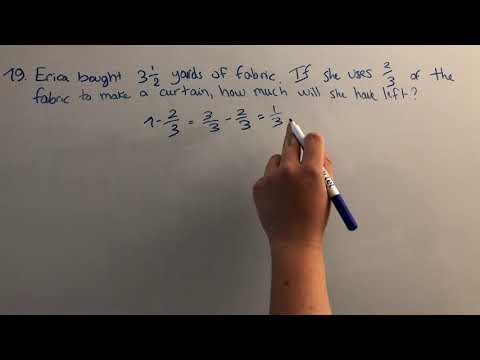 19. Erica bought 3 1/2 yards of fabric. If she uses 2/3 of the
fabric to make a curtain, how much will she have left?
1 - 2/3 = 3/3 - 2/3 = 1/3